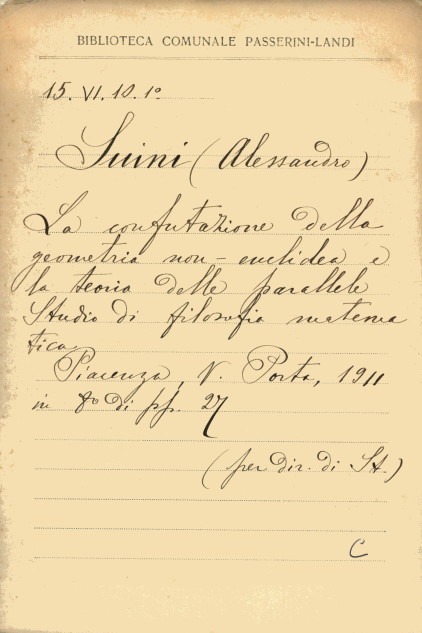 BIBLIOTECA COMUNALE PASSERINI-LANDI
15. VI. 10. 1º
Suini (Alessandro)
La confutazione della
geometria non-euclidea e
la teoria delle parallele
Studio di filosofia matema
tica
Piacenza, V. Porta, 1911
in 8º di pp. 27
(per dir. di St.)
C